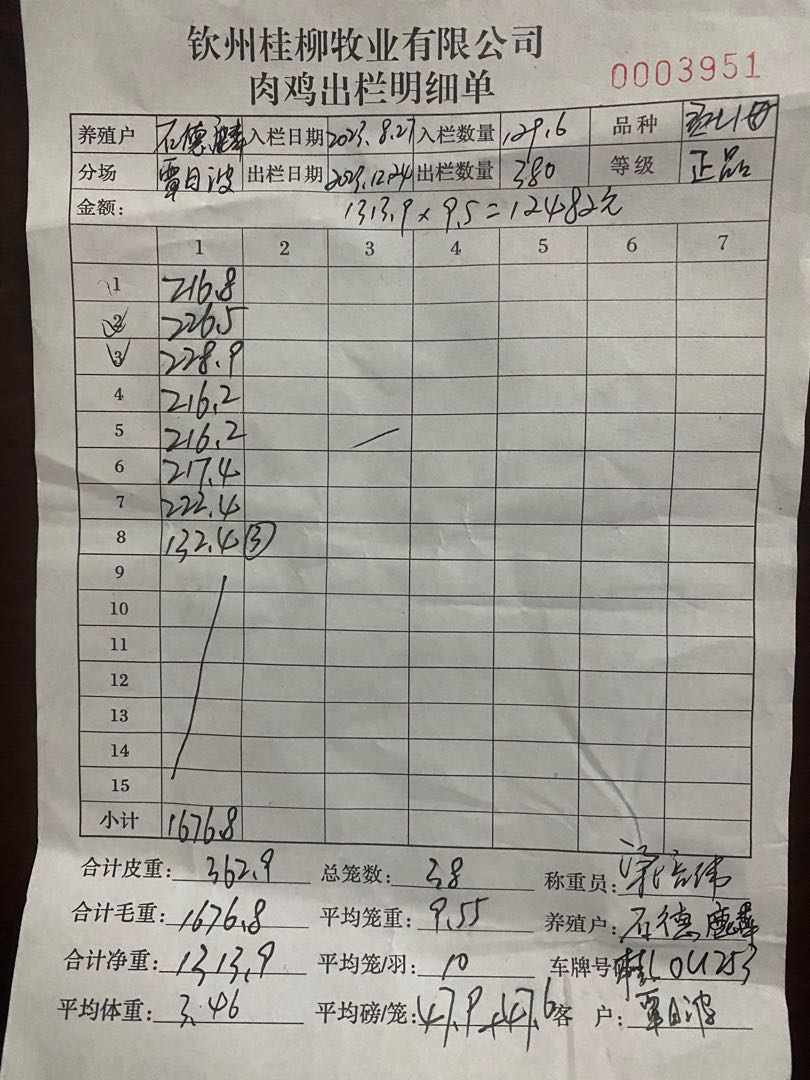 钦州桂柳牧业有限公司
肉鸡出栏明细单
0003951
养殖户 石德麟 入栏日期 2023.8.27 入栏数量 129.6 品种
分场 覃日波 出栏日期 2023.12.24 出栏数量 380 等级 正品
金额: 1313.9×9.5=12482元
1 2 3 4 5 6 7
1 216.8
2 226.5
3 228.9
4 216.2
5 216.2
6 217.4
7 222.4
8 132.4 ③
9
10
11
12
13
14
15
小计 1676.8
合计皮重: 362.9 总笼数: 38 称重员:
合计毛重: 1676.8 平均笼重: 9.55 养殖户: 石德麟
合计净重: 1313.9 平均笼/羽: 10 车牌号
平均体重: 3.46 平均磅/笼: 47.9 47.6 客 户: 覃日波